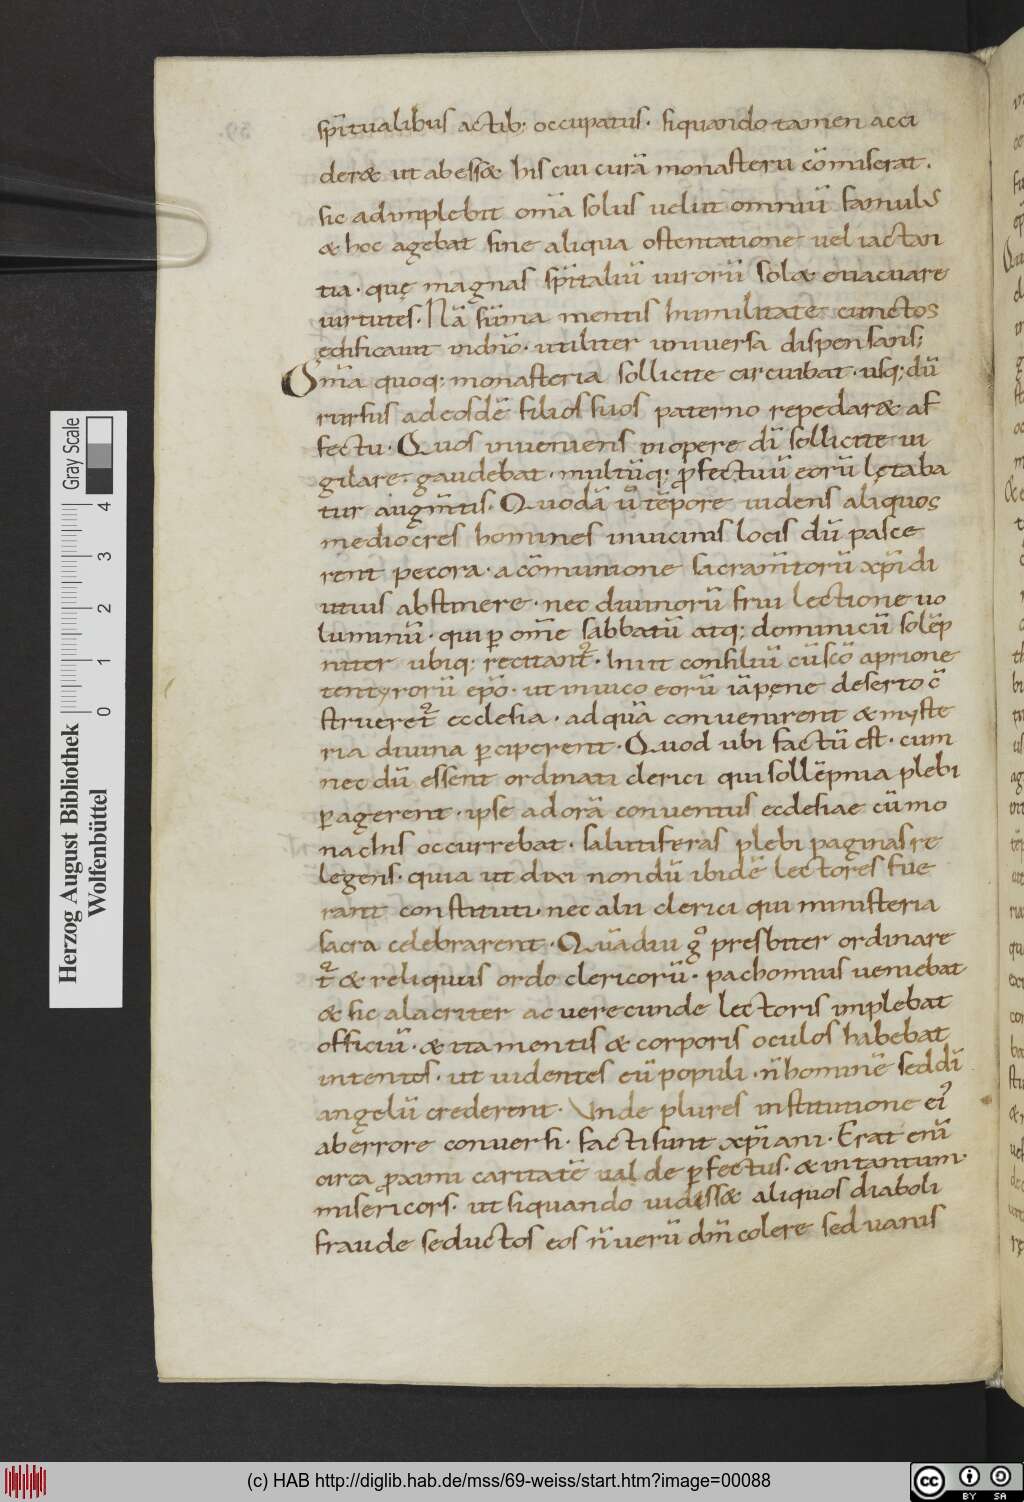 sp̄itualibus actib; occupatus. siquando tamen acci
der& ut abess& his cui curā monasterii cōmiserat.
sic adimplebit om̄a solus velut omniū famulus
& hoc agebat sine aliqua ostentatione vel iactan
tia. quę magnas sp̄italiū virorū sol& evacuare
virtutes. Nā sūma mentis humilitate cunctos
ędificavit in dn̄o. utiliter universa dispensans;
Om̄a quoq; monasteria sollicite circuibat. usq; dū
rursus ad eosdē filios suos paterno repedar& af
fectu. Quos inveniens in opere dī sollicite vi
gilare. gaudebat. multūq; profectuū eorū lętaba
tur augm̄tis. Quodā ū tēpore videns aliquos
mediocres homines in vicinis locis dū pasce
rent pecora. a cōmunione sacram̄torū xp̄i di
utius abstinere. nec divinorū frui lectione vo
luminū. qui per om̄e sabbatū atq; dominicū solēp
niter ubiq; recitant̄. Iniit consiliū cū scō aprione
tentyrorū ep̄o. ut in vico eorū iā pene deserto cō
strueret̄ ecclesia. ad quā convenirent & myste
ria divina perciperent. Quod ubi factū est. cum
nec dū essent ordinati clerici qui sollēpnia plebi
peragerent. ipse ad orā conventus ecclesiae cū mo
nachis occurrebat. salutiferas plebi paginas re
legens. quia ut dixi non dū ibidē lectores fue
rant constituti. nec alii clerici qui ministeria
sacra celebrarent. Quādiu go presbiter ordinare
t̄ & reliquus ordo clericorū. pachomius veniebat
& sic alacriter ac verecunde lectoris implebat
officiū. & ita mentis & corporis oculos habebat
intentos. ut videntes eū populi. n̄ hominē sed dī
angelū crederent. Unde plures institutione ei'
ab errore conversi. facti sunt xp̄iani. Erat enī
circa proximi caritatē valde perfectus. & in tantum.
misericors. ut siquando vidiss& aliquos diaboli
fraude seductos eos n̄ verū dm̄ colere sed vanis
Herzog August Bibliothek
Wolfenbüttel
0 1 2 3 4
Gray Scale
(c) HAB http://diglib.hab.de/mss/69-weiss/start.htm?image=00088
cc BY SA